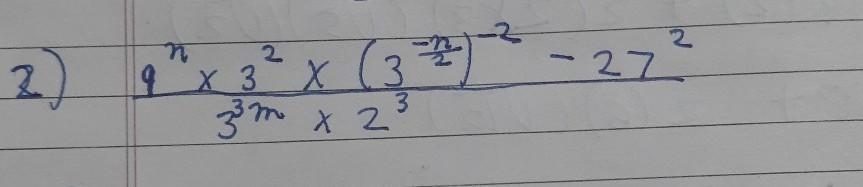 2) 9^n × 3^2 × (3^(-n/2))^-2 - 27^2
3^3m × 2^3